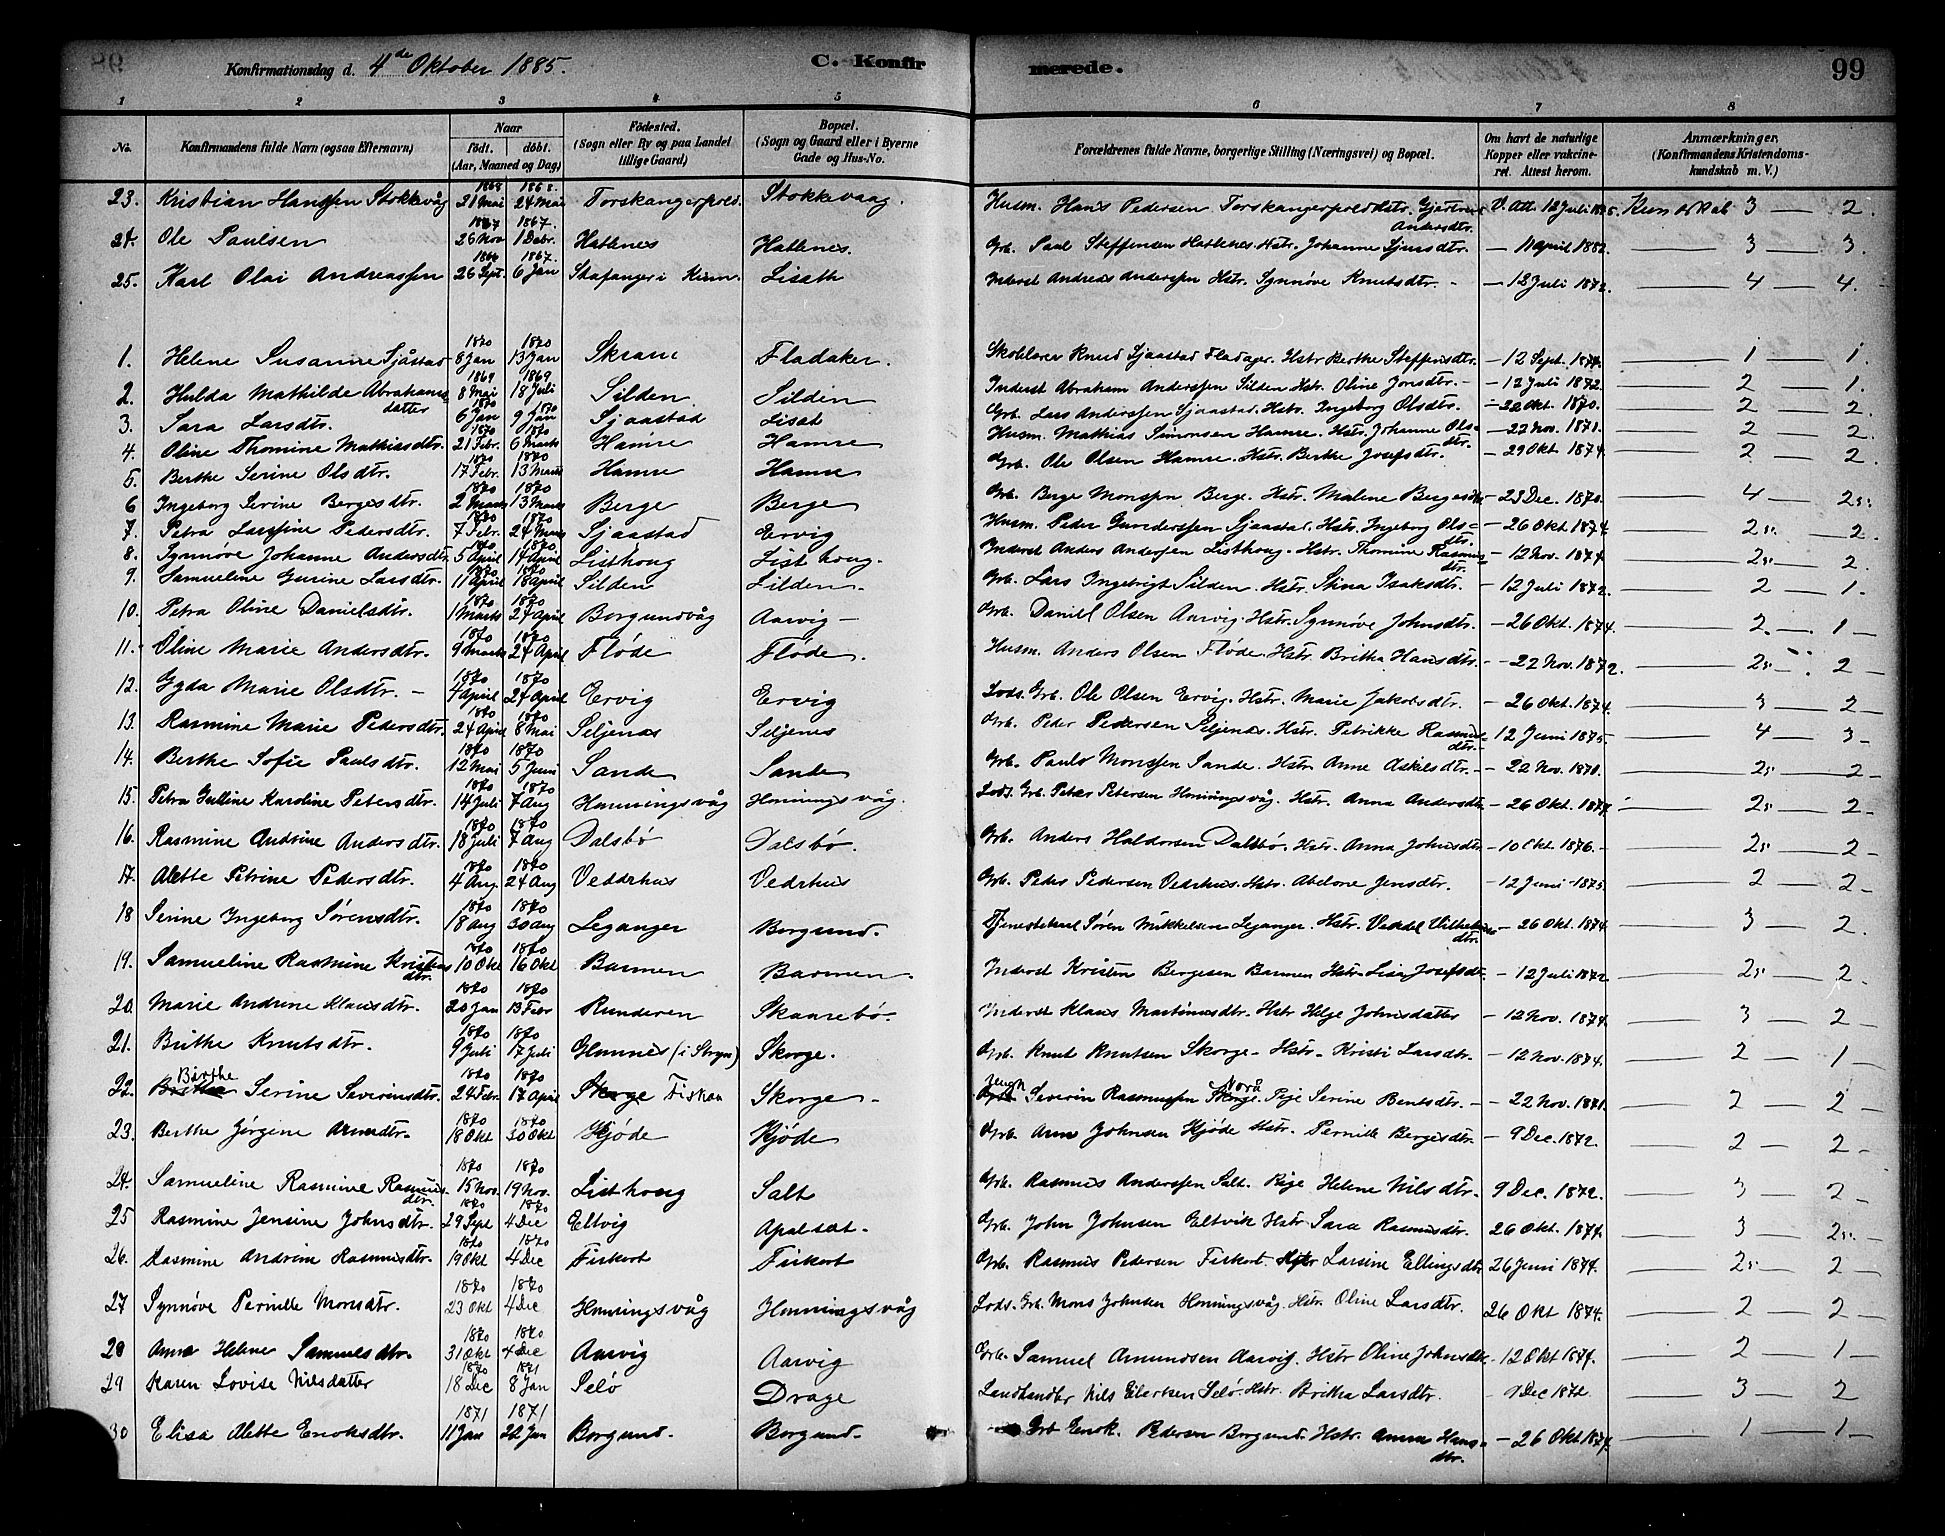 Konfirmationsdag d. 4de Oktober 1885. C. Konfirmerede. 99
1 2 3 4 5 6 7 8
No. Konfirmandens fulde Navn (ogsaa Efternavn) Naar født. døbt. (Aar, Maaned og Dag) Fødested. (Sogn eller By og paa Landet tillige Gaard) Bopæl. (Sogn og Gaard eller i Byerne Gade og Hus-No. Forældrenes fulde Navne, borgerlige Stilling (Næringsvei) og Bopæl. Om havt de naturlige Kopper eller vakcineret. Attest herom. Anmærkninger, (Konfirmandens Kristendomskundskab m. V.)
23. Kristian Hanssen Stokkevåg 1868 21 Mai 1868. 24 Mai Torskangerpold. Stokkevaag. Husm. Hans Pedersen Torskangerpold Hstr. Andersdtr. V. Att. 12 Juli 3 — 2.
24. Ole Paulsen 1867 26 Nov 1867. 1 Debr. Hatlenes Hatlenes. Grb. Paul Steffensen Hatlenes. Hstr. Johanne Sjursdtr. — 11 April 1882. 3 — 3.
25. Karl Olai Andreassen 1866 26 Sept. 1867. 6 Jan Skafanger i Kinn. Liseth Inderst Andreas Anderssen Hstr. Synnøve Knutsdtr. - — 12 Juli 1872. 4 — 4.
1. Helene Susanne Sjåstad 1870 8 Jan 1870 13 Jan Skram Fladaker. Skolelærer Knud Sjaastad Fladager. Hstr Berthe Steffensdtr. — 12 Sept. 1874. 1 — 1.
2. Hulda Mathilde Abrahamsdatter 1869 8 Mai 1869 18 Juli Silden. Silden Inderst Abraham Anderssen Silden Hstr. Oline Jonsdtr. - — 12 Juli 1872. 2 — 1.
3. Sara Larsdtr. 1870 6 Jan 1870 9 Jan Sjaastad Liset Grb. Lars Anderssen Sjaastad. Hstr. Ingeborg Olsdtr. — 22 Okt. 1870. 2 — 2.
4. Oline Thomine Mathiasdtr. 1870 21 Febr. 1870 6 Marts Hamre Hamre Husm. Mathias Simonsen Hamre. Hstr. Johanne Olsdtr. — 22 Nov. 1871. 2 — 2.
5. Berthe Serine Olsdtr. 1870 17 Febr. 1870 13 Marts Hamre Hamre Grb. Ole Olsen Hamre. Hstr. Berthe Josefsdtr. — 29 Okt 1874. 2 — 2.
6 Ingeborg Serine Bergesdtr. 1870 2 Marts 1870 13 Marts Berge Berge Grb. Berge Monssen Berge. Hstr. Malene Bergesdtr — 23 Dec. 1870. 4 — 25.
7. Petra Larssine Pedersdtr. 1870 7 Febr. 1870 24 Marts Sjaastad Ervig Husm. Peder Gunderssen Sjaastad. Hstr. Ingeborg Olsdtr. — 26 Okt 1874. 25. — 2.
8. Synnøve Johanne Andersdtr 1870 5 April 1870. 14 April Listhoug Listhoug. Inderst Anders Anderssen Listhoug. Hstr. Thomine Rasmusdtr. — 12 Nov. 1874. 25. — 2.
9. Samueline Gurine Larsdtr. 1870 11 April 1870 18 April Silden Silden. Grb. Lars Ingebrigt Silden. Hstr. Stina Isaksdtr. — 12 Juli 1872. 2 — 1.
10. Petra Oline Danielsdtr. 1870 1 Marts 1870 24 April Borgundvåg Aarvig — Grb. Daniel Olsen Aarvig. Hstr. Synnøve Johnsdtr. — 26 Okt. 1874. 2. — 1 —
11. Oline Marie Andersdtr. 1870 9 Marts 1870 24 April Fløde Fløde. Husm. Anders Olsen Fløde. Hstr. Britha Hansdtr. — 22 Nov. 1872. 25. — 2 —
12. Gyda Marie Olsdtr. — 1870 4 April 1870 24 April Ervig Ervig Lods. Grb. Ole Olsen Ervig. Hstr. Marie Jakobsdtr. — 26 Okt. 1874. 3 — 2 —
13. Rasmine Marie Pedersdtr. 1870 24 April 1870 8 Mai Seljenæs Seljenes Grb. Peder Pedersen Seljenæs. Hstr. Petrikke Rasmusdtr. — 12 Juni 1875. 4 — 3 —
14. Berthe Sofie Paulsdtr. 1870 12 Mai 1870 5 Juni Sande Sande Grb. Paulo Monssen Sande. Hstr Anne Askelsdtr. — 22 Nov. 1870. 25 — 2 —
15. Petra Gulline Karoline Petersdtr. 1870 14 Juli 1870 7 Aug Honningsvåg Honningsvåg. Lods. Grb. Petter Petersen Honningsvåg. Hstr. Anna Andersdtr — 26 Okt. 1874. 25 — 2 —
16. Rasmine Andrine Andersdtr. 1870 18 Juli 1870 7 Aug Dalsbø Dalsbø. Grb. Anders Haldorsen Dalsbø. Hstr. Anna Johnsdtr — 10 Okt. 1876. — 25 — 2 —
17. Alette Petrine Pedersdtr. 1870 4 Aug. 1870 24 Aug Veddrhus Vedrhus Grb. Peder Pedersen Vedrhus. Hstr. Abelone Jensdtr. — 12 Juni 1875. 2 — 2 —
18 Serine Ingeborg Sørensdtr. 1870 18 Aug 1870 30 Aug Leganger Borgund. Tjenestekarl Søren Mikkelsen Leganger. Hstr. — 26 Okt. 1874. 3 — 2.
19. Samueline Rasmine Kristensdtr. 1870 10 Okt 1870 16 Okt Barmen Barmen. Inderst Kristen Bergesen Barmen Hstr. Lisa Josefsdtr. — 12 Juli 1872. 25 — 2
20. Marie Andrine Klausdtr. 1870 20 Jan 1870 13 Febr Runderen Skaarebø. Inderst Klaus Martinusdtr. Hstr Helje Johnsdatter — 12 Nov. 1874. 3 — 2 —
21. Brithe Knutsdtr. 1870 9 Juli 1870 17 Juli Glomnes (i Stryn) Skorge. Grb. Knut Knutsen Skorge — Hstr. Kristi Larsdtr. — 12 Nov. 1874. 2 — 1 —
22. Berthe Serine Severinsdtr. 1870 24 Febr. 1870 17 April Skorge Fiskaa Skorge — Severin Rasmussen Skorge Norå Pige Serine Bentsdtr. — 22 Nov. 1871. 2 — 2 —
23. Berthe Jørgine Arnedtr. 1870 18 Okt 1870 30 Okt Kjøde Kjøde Grb. Arne Johnsen Kjøde Hstr. Pernille Bergesdtr. — 9 Dec. 1872. 2 — 2 —
24. Samueline Rasmine Rasmusdtr. 1870 15 Nov. 1870 19 Nov. Listhoug Salt Grb. Rasmus Anderssen Salt. Pige Helene Nilsdtr. 9 Dec. 1872. 3 — 2 —
25 Rasmine Jensine Johnsdtr. 1870 29 Sept 1870 4 Dec Eltvig Apalset. Grb. John Johnsen Eltvik Hstr Sara Rasmusdtr. 26 Okt. 1874. 3 — 25. —
26. Rasmine Andrine Rasmusdtr. 1870 19 Okt 1870 4 Dec Fiskert Fiskert Grb. Rasmus Pedersen Fiskert. Hstr Larsine Ellingsdtr 26 Juni 1874. 25 — 2 —
27 Synnøve Pernille Monsdtr. 1870 23 Okt 1870 4 Dec Honningsvåg Honningsvåg Lods. Grb. Mons Johnsen Honningsvåg. Hstr. Oline Larsdtr. 26 Okt 1874. 2 — 2
28 Anne Helene Samuelsdtr. 1870 31 Okt 1870 4 Dec Aarvig Aarvig Grb. Samuel Amundsen Aarvig. Hstr Oline Johnsdtr — 12 Okt 1874. 2 — 1 —
29 Karen Lovise Nilsdatter 1870 18 Dec 1871 8 Jan Selø Drage Landhandler Nils Eilertsen Selø. Hstr. Britha Larsdtr. 3 — 2
30 Elisa Alette Enoksdtr. 1871 11 Jan 1871 22 Jan Borgund. Borgund. Grb Enok. Pedersen Borgund. Hstr. Anna Hansdtr. — 26 Okt 1874. 1 — 1 —